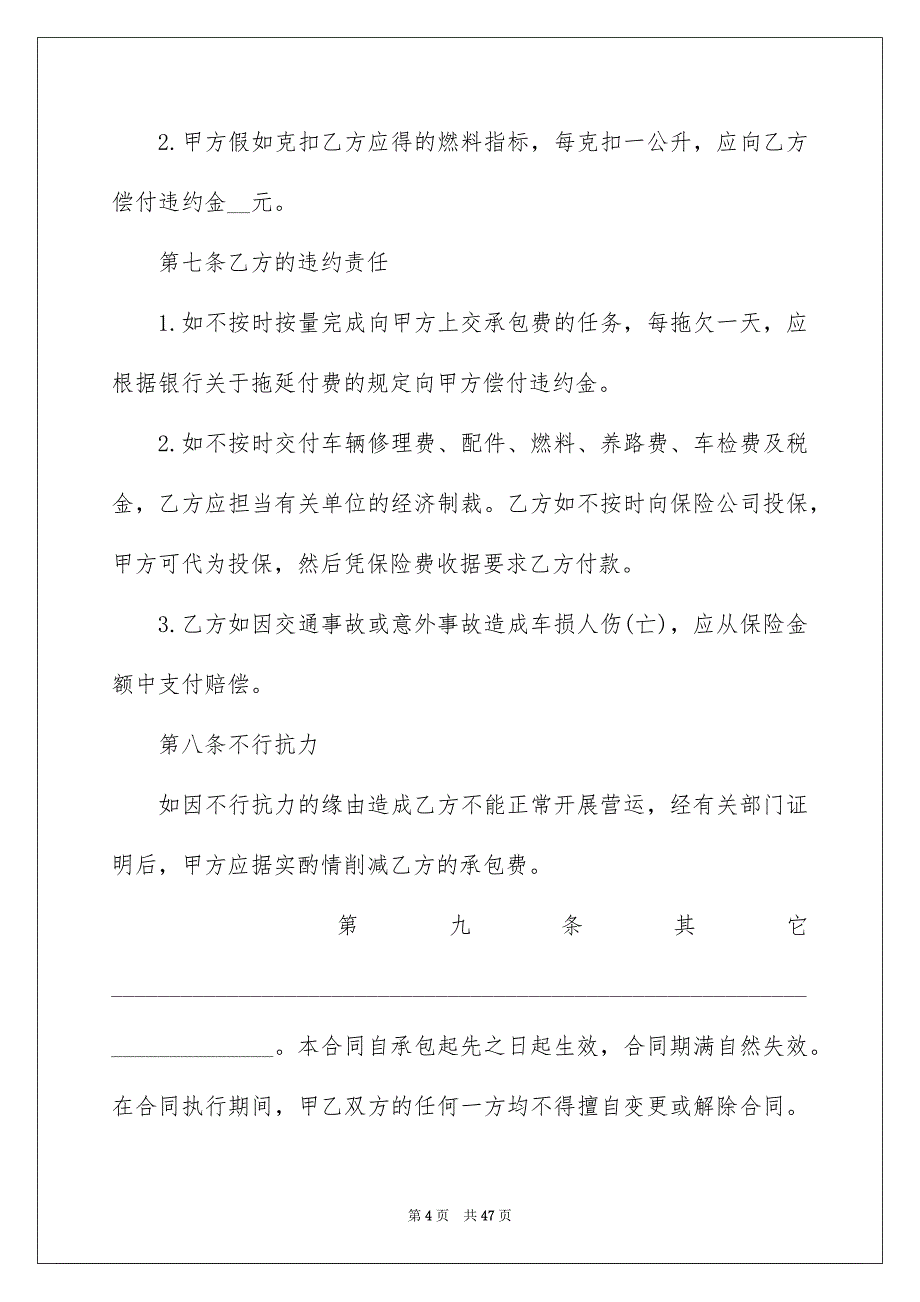 2.甲方假如克扣乙方应得的燃料指标，每克扣一公升，应向乙方
偿付违约金__元。
第七条乙方的违约责任
1.如不按时按量完成向甲方上交承包费的任务，每拖欠一天，应
根据银行关于拖延付费的规定向甲方偿付违约金。
2.如不按时交付车辆修理费、配件、燃料、养路费、车检费及税
金，乙方应担当有关单位的经济制裁。乙方如不按时向保险公司投保，
甲方可代为投保，然后凭保险费收据要求乙方付款。
3.乙方如因交通事故或意外事故造成车损人伤(亡)，应从保险金
额中支付赔偿。
第八条不行抗力
如因不行抗力的缘由造成乙方不能正常开展营运，经有关部门证
明后，甲方应据实酌情削减乙方的承包费。
第九条其它
____________________________________________________________
______________。本合同自承包起先之日起生效，合同期满自然失效。
在合同执行期间，甲乙双方的任何一方均不得擅自变更或解除合同。
第 4 页 共 47 页